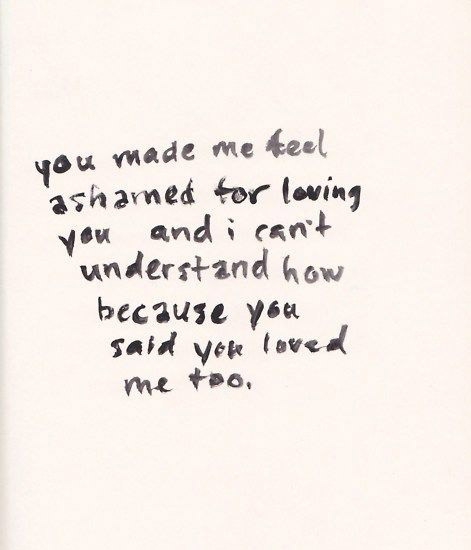 you made me feel
ashamed for loving
you and i can't
understand how
because you
said you loved
me too.